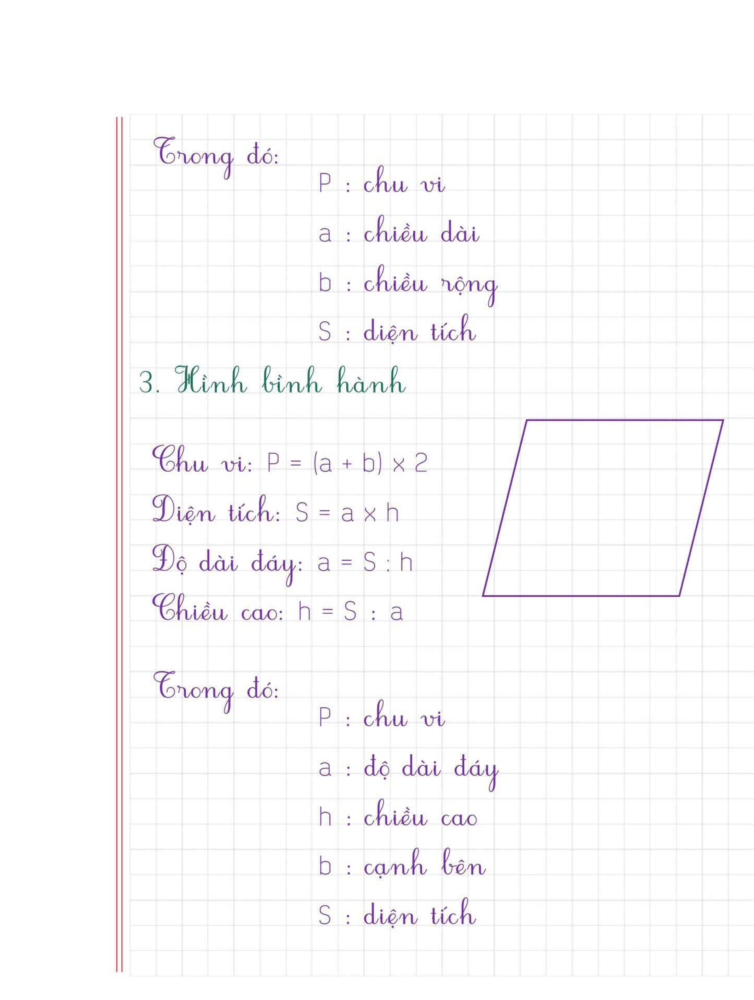 Trong đó:
P : chu vi
a : chiều dài
b : chiều rộng
S : diện tích
3. Hình bình hành
Chu vi: P = (a + b) x 2
Diện tích: S = a x h
Độ dài đáy: a = S : h
Chiều cao: h = S : a
Trong đó:
P : chu vi
a : độ dài đáy
h : chiều cao
b : cạnh bên
S : diện tích